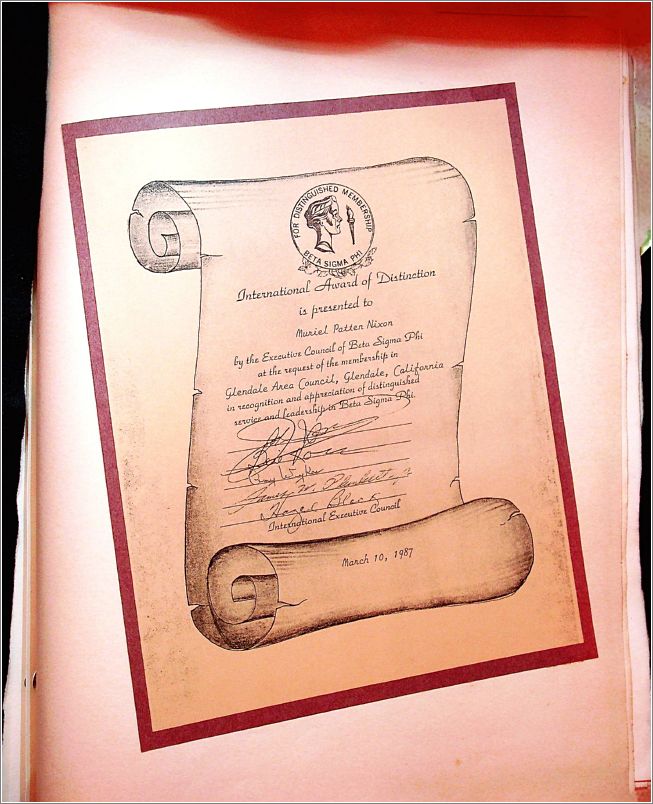 FOR DISTINGUISHED MEMBERSHIP
BETA SIGMA PHI
International Award of Distinction
is presented to
Muriel Patten Nixon
by the Executive Council of Beta Sigma Phi
at the request of the membership in
Glendale Area Council, Glendale, California
in recognition and appreciation of distinguished
service and leadership in Beta Sigma Phi.
Hazel Black
International Executive Council
March 10, 1987